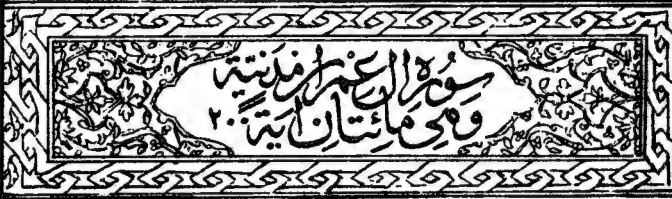 سُورَة اٰل عِمْرٰن مَدَنِيَّة
وَهِيَ مِائَتَانِ اٰيَة ٢٠٠